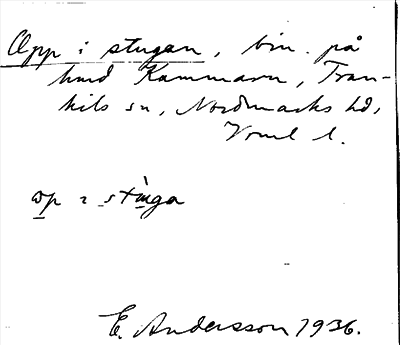 Opp i stugan, bin. på
hmd Kammarn, Tran-
kils sn, Nordmarks hd,
Vrml l.
op i stùga
E. Andersson 1936.